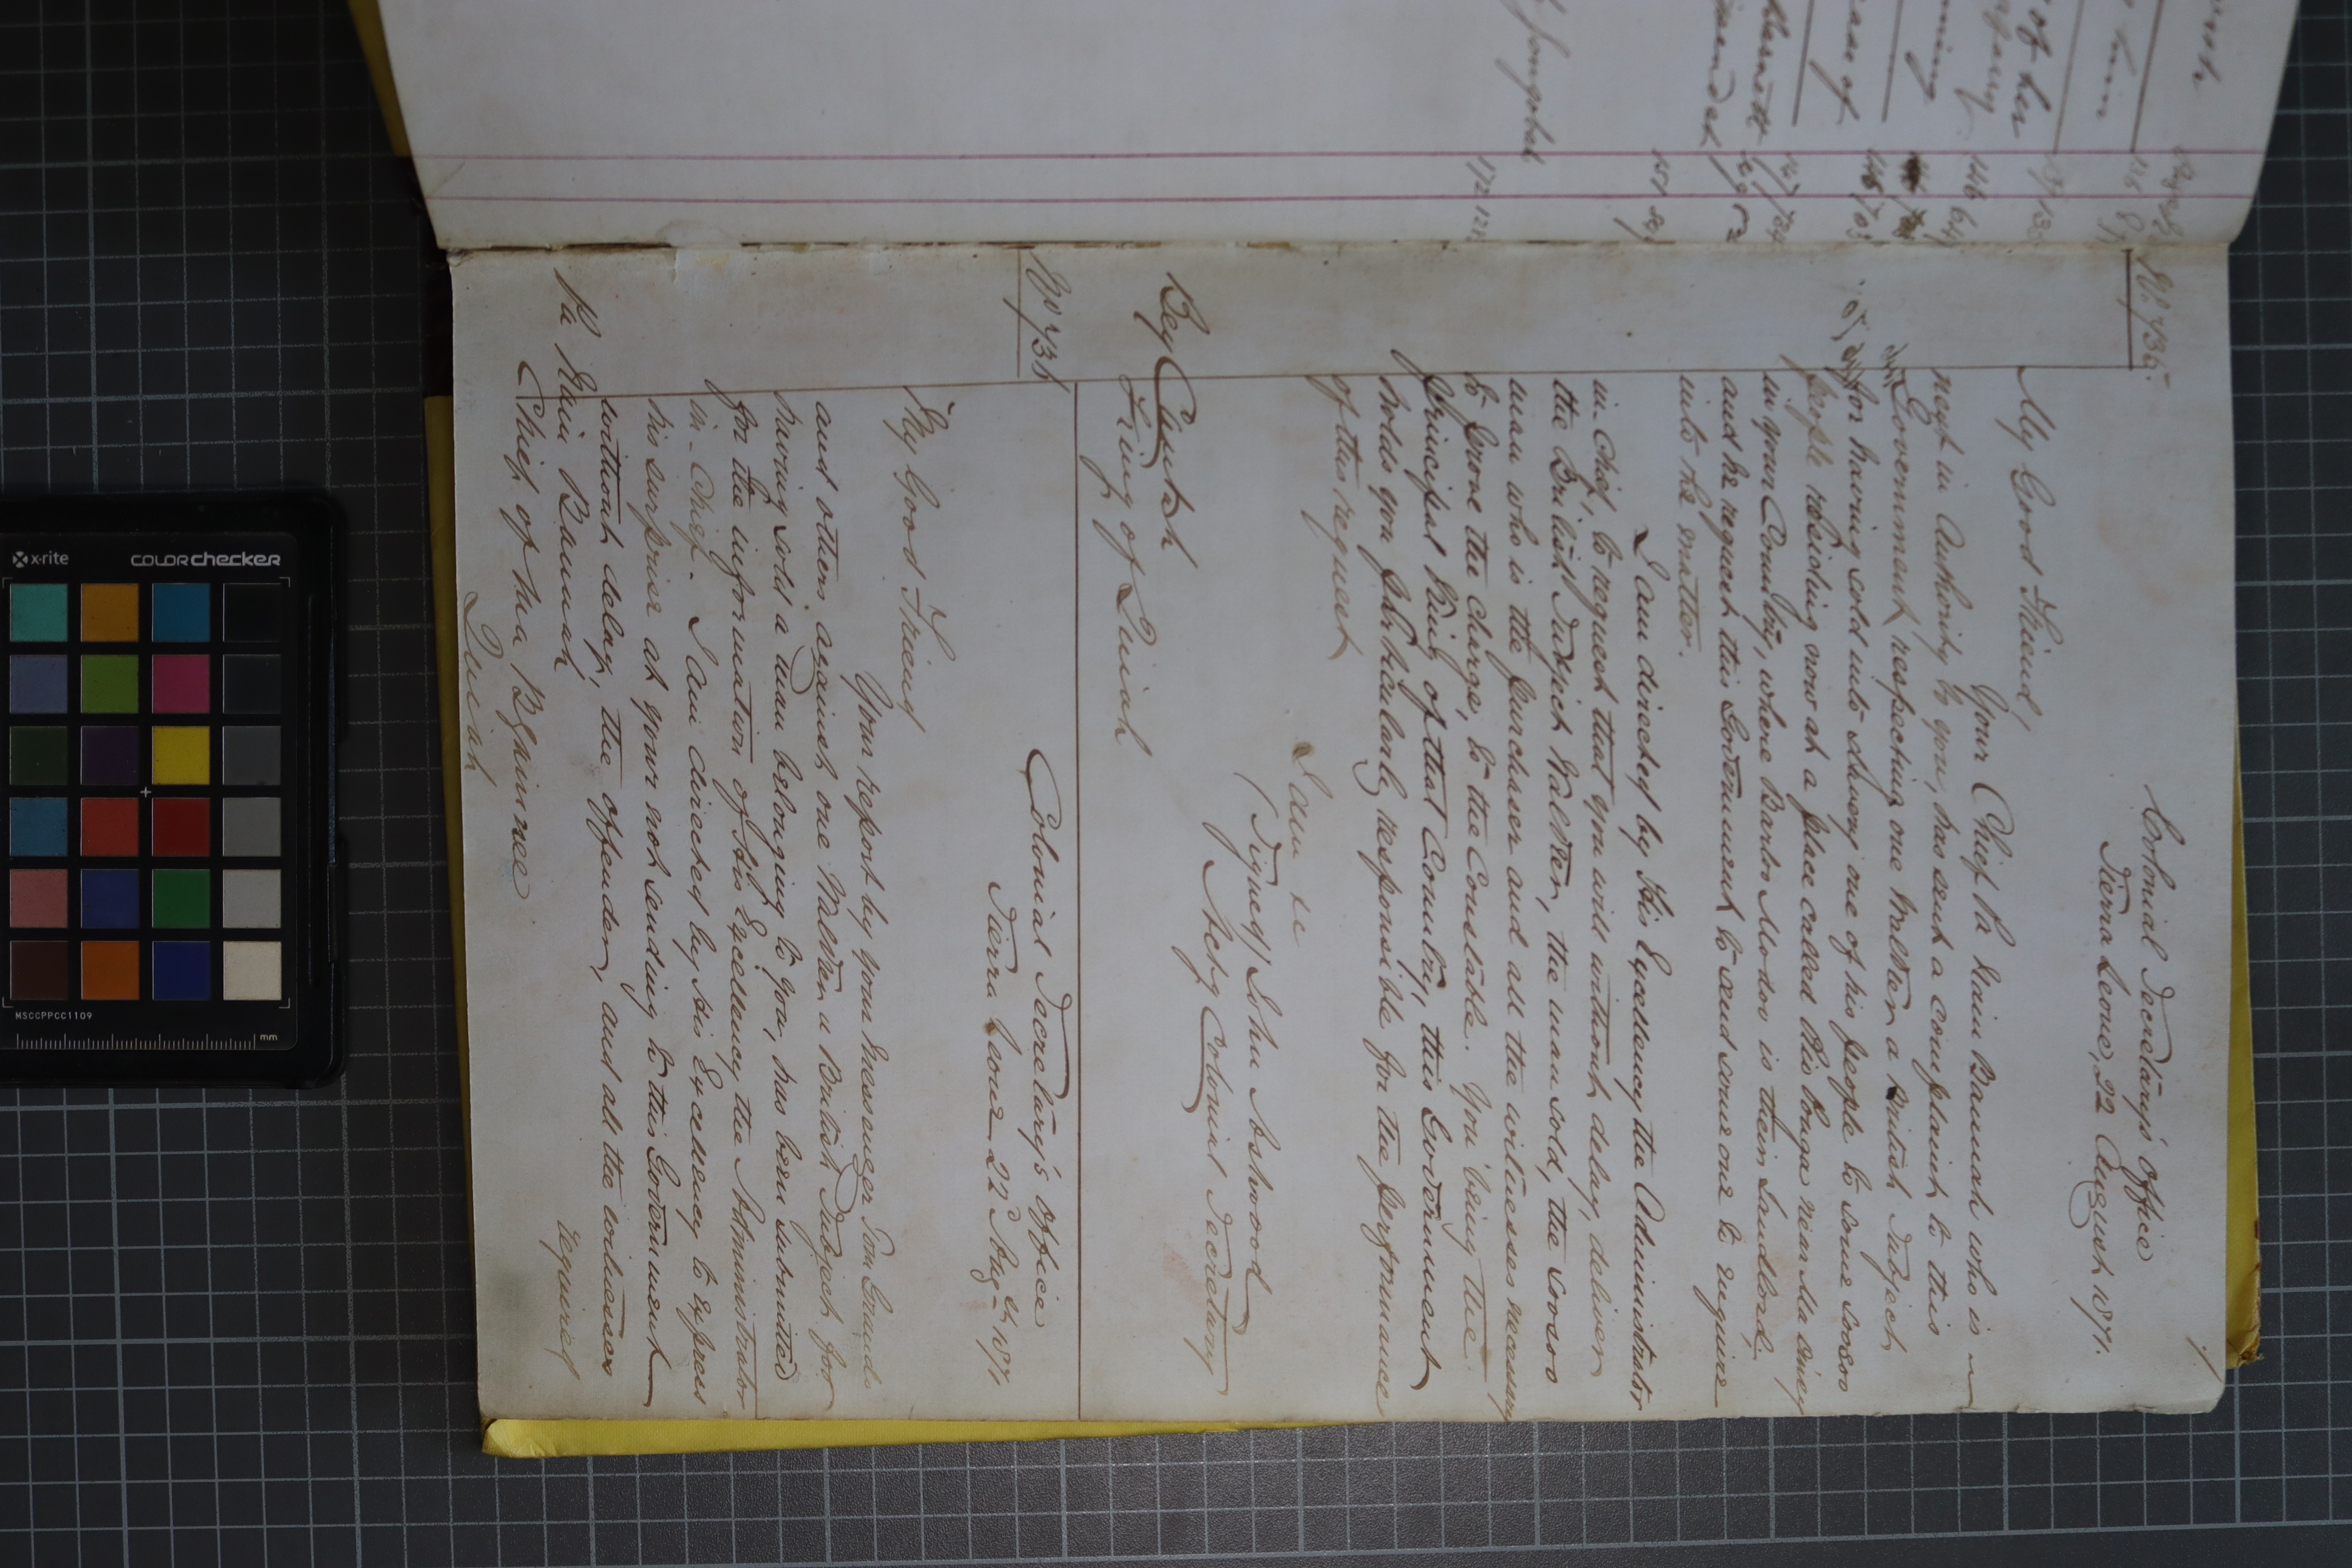 1
No. 735
Colonial Secretary's office
Sierra Leone, 22 August 1871.
My Good Friend,
Your Chief Pa Kain Bannah who is
next in Authority to you, has sent a complaint to this
Government, respecting one Walker a British Subject
for having sold into slavery one of his people to some Soosoo
people residing now at a place called Ro Ponga near Ma
in your Country, where Banta Modoo is their Landlord;
and he request this Government to send some one to enquire
into the matter.
I am directed by His Excellency the Administrator
in Chief, to request that you will without delay, deliver
the British Subject Walker, the man sold, the Soosoo
man who is the purchaser and all the witnesses necessary
to prove the charge, to the Constable. You being the
principal King of that Country, this Government
holds you particularly responsible for the performance
of this request
I am &c
(Signed) John Ashwood
Actg Colonial Secretary
Bey Cantah
King of Quiah
No 736
Colonial Secretary's office
Sierra Leone 22d Augt. 1871
My Good Friend
Your report by your messenger
and others against one Walker a British Subject for
having sold a man belonging to you, has been submitted
for the information of His Excellency the Administrator
in-Chief. I am directed by His Excellency to express
his surprise at your not sending to this Government
without delay, the offender, and all the witnesses
required
Pa Kain Bannah
Chief of
Quiah
of her
case of
X-rite
COLORchecker
MSCCPPCC1109
mm